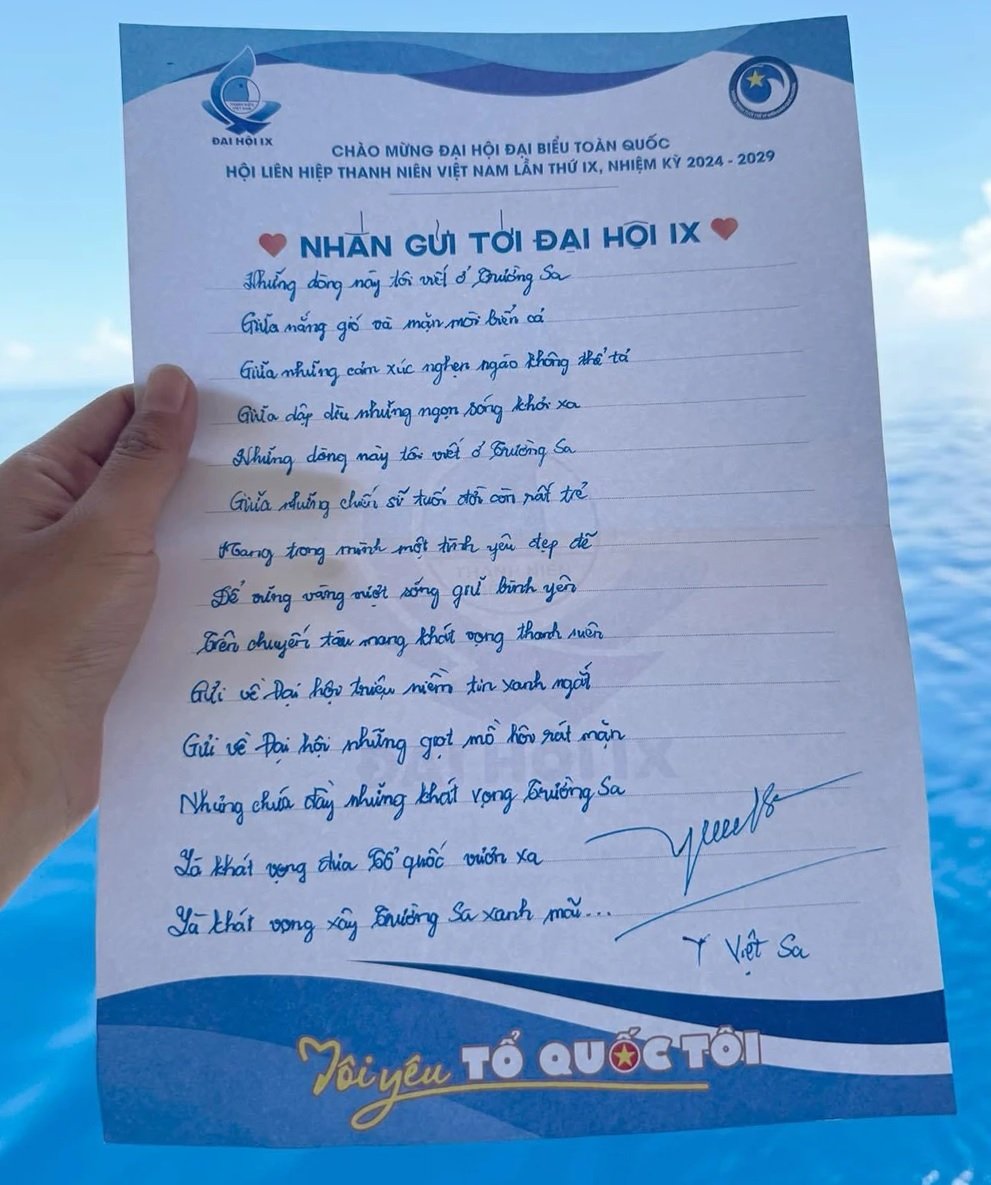 THANH NIÊN
VIỆT NAM
ĐẠI HỘI IX
CHÀO MỪNG ĐẠI HỘI ĐẠI BIỂU TOÀN QUỐC
HỘI LIÊN HIỆP THANH NIÊN VIỆT NAM LẦN THỨ IX, NHIỆM KỲ 2024 - 2029
NHẮN GỬI TỚI ĐẠI HỘI IX
Những dòng này tôi viết ở Trường Sa
Giữa nắng gió và mặn mòi biển cả
Giữa những cảm xúc nghẹn ngào không thể tả
Giữa dập dìu những ngọn sóng khơi xa
Những dòng này tôi viết ở Trường Sa
Giữa những chiến sĩ tuổi đời còn rất trẻ
Mang trong mình một tình yêu đẹp đẽ
Để vững vàng vượt sóng giữ bình yên
Trên chuyến tàu mang khát vọng thanh niên
Gửi về Đại hội triệu niềm tin xanh ngắt
Gửi về Đại hội những giọt mồ hôi rất mặn
Nhưng chứa đầy những khát vọng Trường Sa
Là khát vọng đưa Tổ quốc vươn xa
Là khát vọng xây Trường Sa xanh mãi...
Y Việt Sa
Tôi yêu TỔ QUỐC TÔI